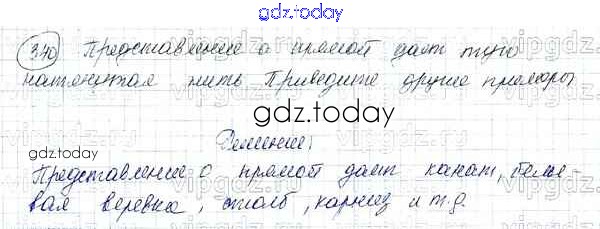 gdz.today
3.40 Представление о прямой дает туго
натянутая нить Приведите другие примеры
gdz.today
Решение:
gdz.today
Представление о прямой дает канат, белье-
вая веревка, столб, карниз и т.д.